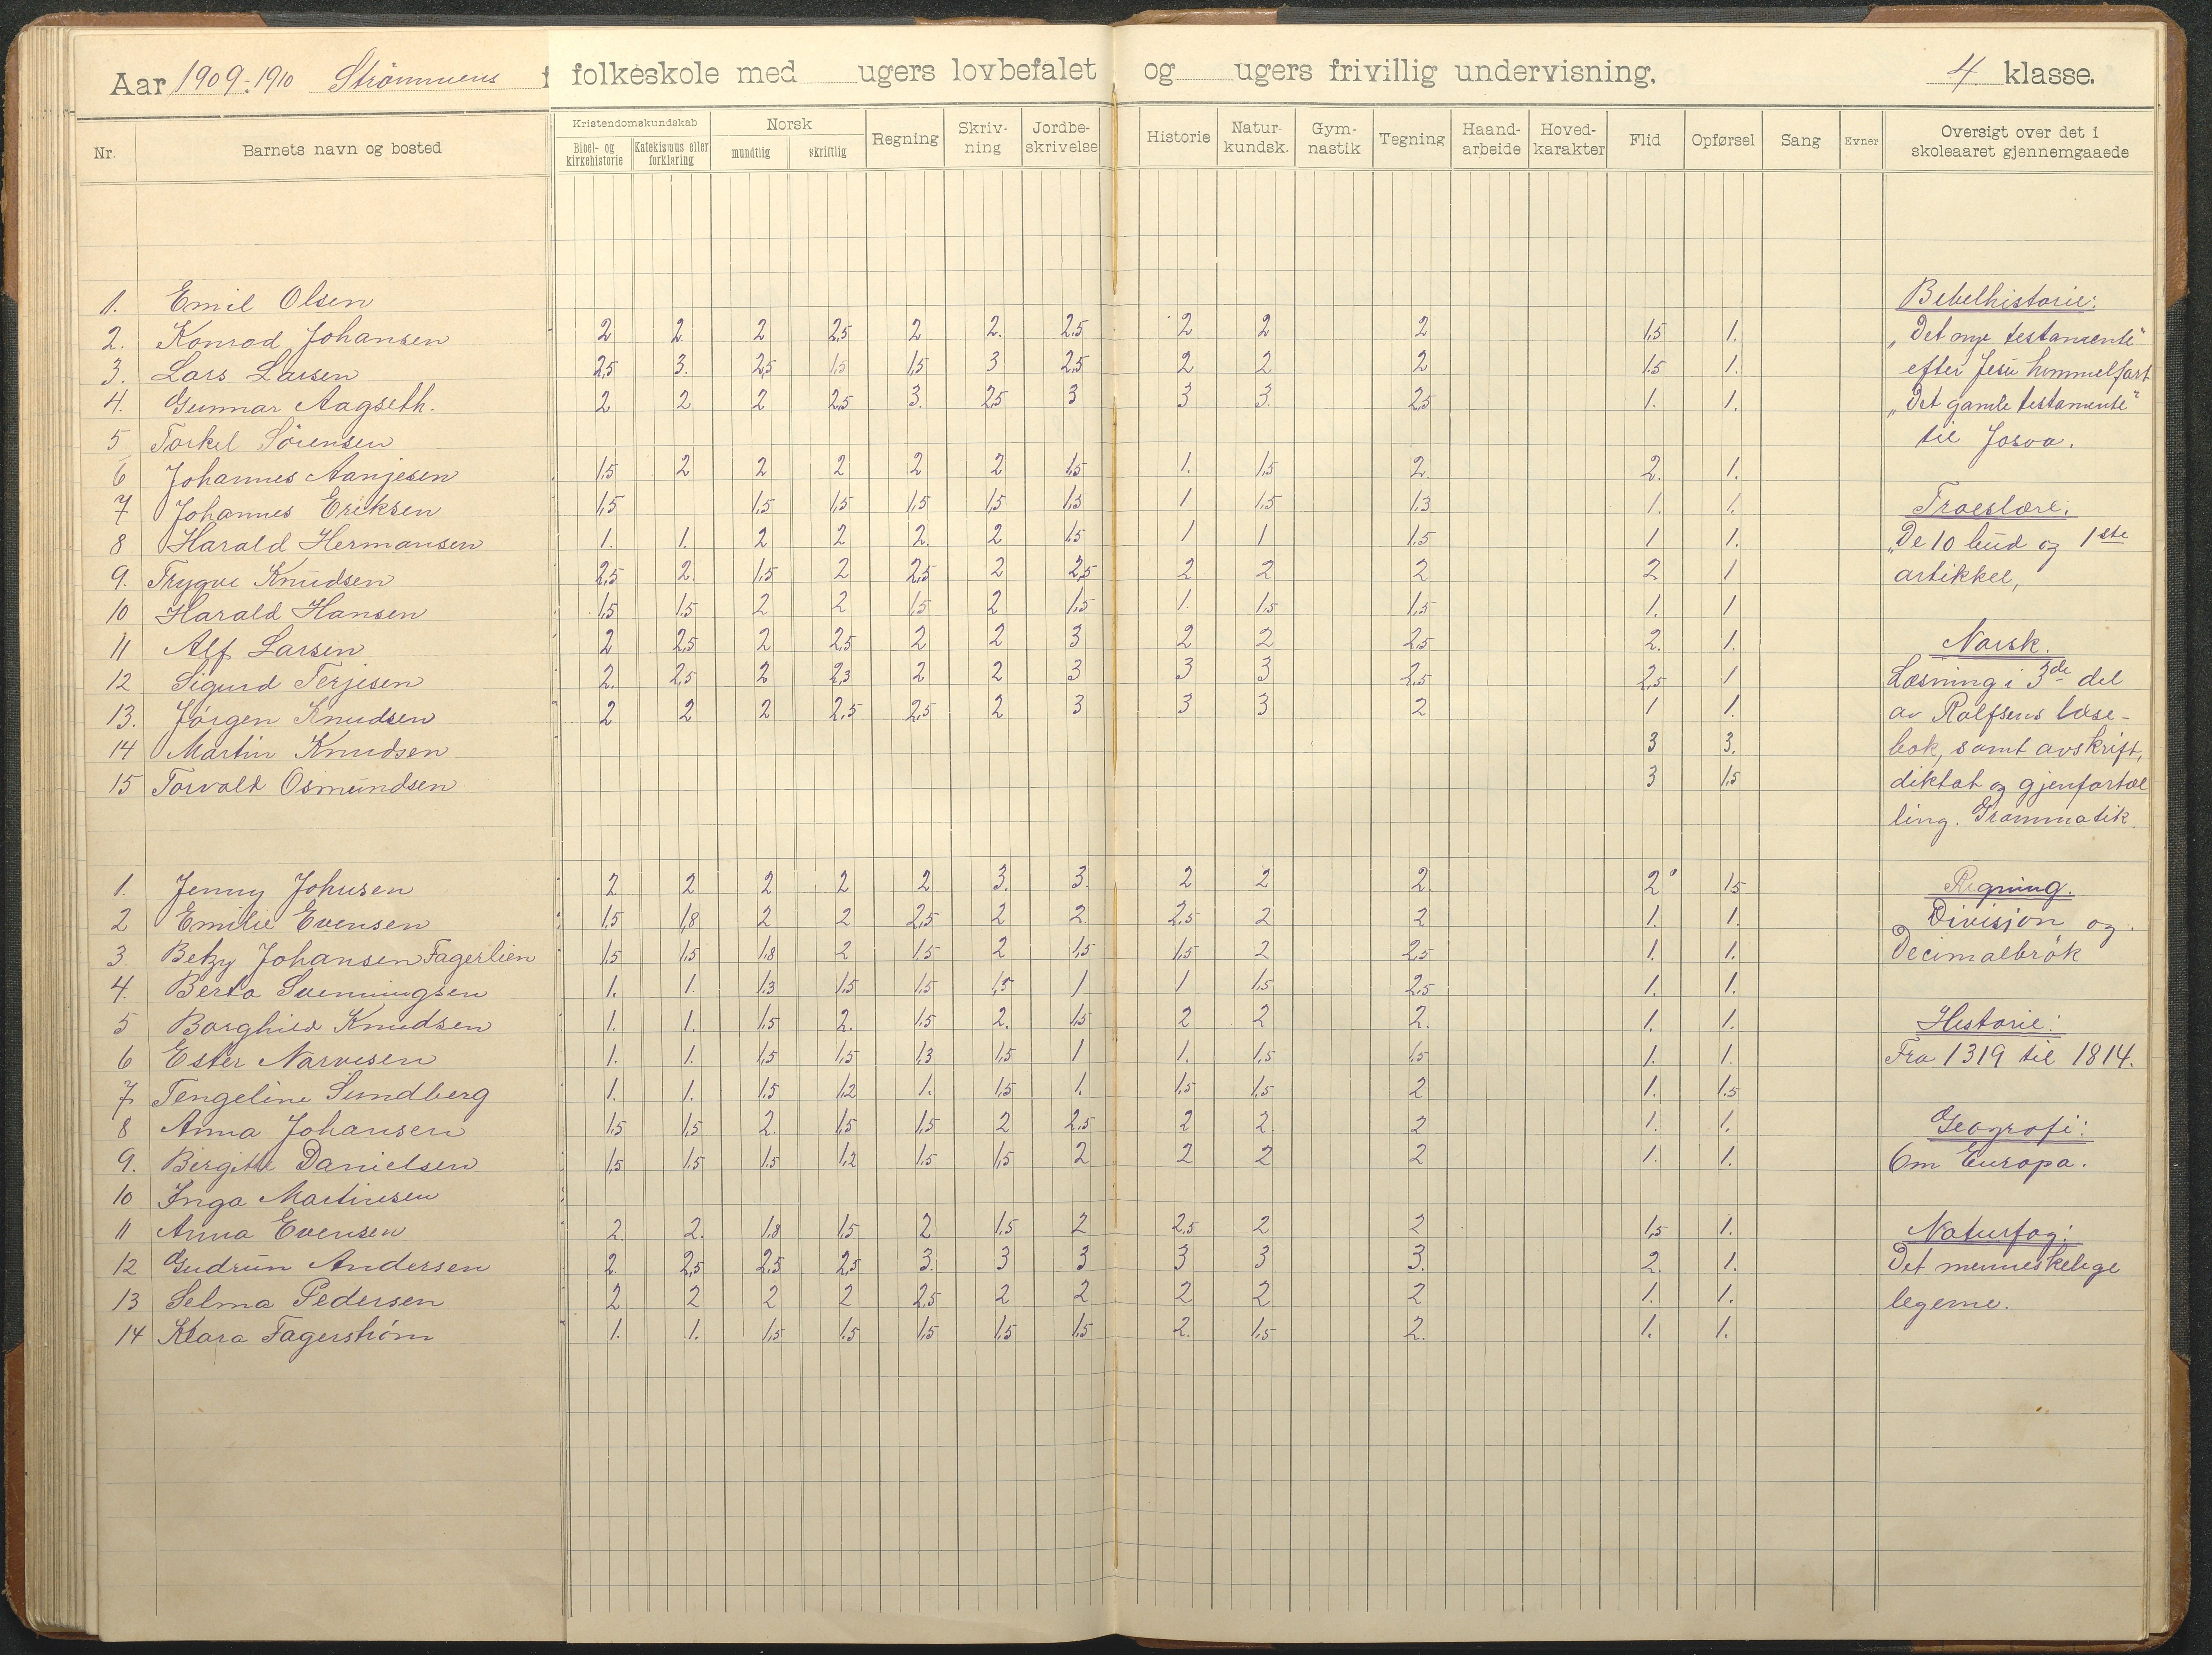 Aar 1909-1910 Strømmens folkeskole med ugers lovbefalet og ugers frivillig undervisning. 4 klasse.
Nr. Barnets navn og bosted Kristendomskundskab Bibel- og kirkehistorie Katekismus eller forklaring Norsk mundtlig skriftlig Regning Skrivning Jordbeskrivelse Historie Naturkundsk. Gymnastik Tegning Haandarbeide Hovedkarakter Flid Opførsel Sang Evner Oversigt over det i skoleaaret gjennemgaaede
1. Emil Olsen Bebelhistorie:
2. Konrad Johansen 2 2 2 2,5 2 2. 2,5 2 2 2 1,5 1. „Det nye testamente"
3. Lars Larsen 2,5 3. 2,5 1,5 1,5 3 2,5 2 2 2 1,5 1. efter Jesu himmelfart
4. Gunnar Aagseth. 2 2 2 2,5 3. 2,5 3 3 3. 2,5 1. 1. „Det gamle testamente"
5 Torkel Sörensen til Josva.
6 Johannes Aanjesen 1,5 2 2 2 2 2 1,5 1. 1,5 2. 2. 1.
7 Johannes Eriksen 1,5 1,5 1,5 1,5 1,5 1,5 1 1,5 1,3 1. 1. Troeslære:
8 Harald Hermansen 1. 1. 2 2 2. 2 1,5 1 1 1,5 1 1. „De 10 bud og 1ste
9. Trygve Knudsen 2,5 2. 1,5 2 2,5 2 2,5 2 2 2 2 1 artikkel,
10 Harald Hansen 1,5 1,5 2 2 1,5 2 1,5 1. 1,5 1,5 1. 1
11 Alf Larsen 2 2,5 2 2,5 2 2 3 2 2 2,5 2. 1. Norsk.
12 Sigurd Terjesen 2. 2,5 2 2,3 2 2 3 3 3 2,5 2,5 1 Læsning i 3de del
13. Jörgen Knudsen 2 2 2 2,5 2,5 2 3 3 3 2 1 1. av Rolfsens læse-
14 Martin Knudsen 3 3. bok, samt avskrift,
15 Torvald Osmundsen 3 1,5 diktat og gjenfortæl
ling. Grammatik
1. Jenny Johnsen 2 2 2 2 2 3. 3. 2 2 2. 2 1,5 Regning.
2 Emilie Evensen 1,5 1,8 2 2 2,5 2 2 2,5 2 2 1. 1. Division og
3. Betzy Johansen Fagerlien 1,5 1,5 1,8 2 1,5 2 1,5 1,5 2 2,5 1. 1. Decimalbrök
4. Berta Svenningsen 1. 1. 1,3 1,5 1,5 1,5 1 1 1,5 2,5 1. 1.
5 Borghild Knudsen 1. 1. 1,5 2. 1,5 2. 1,5 2 2 2. 1. 1. Historie:
6 Ester Narvesen 1. 1. 1,5 1,5 1,3 1,5 1 1. 1,5 1,5 1. 1. Fra 1319 til 1814.
7 Tengeline Sundberg 1. 1. 1,5 1,2 1. 1,5 1. 1,5 1,5 2 1. 1,5
8 Anna Johansen 1,5 1,5 2. 1,5 1,5 2 2,5 2 2 2 1. 1. Geografi:
9. Birgitte Danielsen 1,5 1,5 1,5 1,2 1,5 1,5 2 2 2 2 1. 1. Om Europa.
10 Inga Martinsen
11 Anna Evensen 2. 2. 1,8 1,5 2 1,5 2 2,5 2 2 1,5 1. Naturfag:
12 Gudrun Andersen 2. 2,5 2,5 2,5 3. 3 3 3 3 3. 2. 1. Det menneskelige
13 Selma Pedersen 2 2 2 2 2,5 2 2 2 2 2 1. 1. legeme.
14 Klara Fagerstrøm 1. 1. 1,5 1,5 1,5 1,5 1,5 2. 1,5 2. 1. 1.